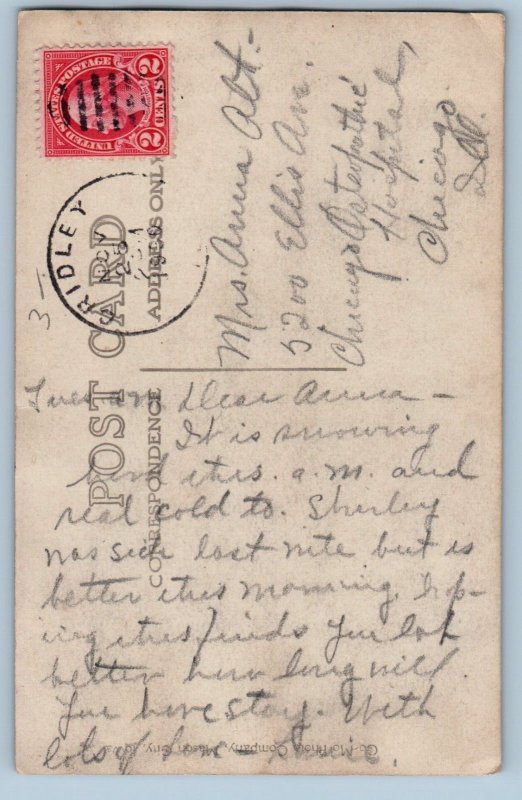 UNITED STATES POSTAGE
2 2
GRIDLEY
NOV
POST CARD
CORRESPONDENCE
ADDRESS ONLY
3
Mrs. Anna Alt.-
5200 Ellis Av.
Chicago Osteopathic
Hospital,
Chicago.
Ill.
Tues a.m. Dear Anna -
It is snowing
here this. a.m. and
real cold to. Shirley
was sick last nite but is
better this morning. Hop-
ing this finds you lot
better how long will
you have stay. With
lots of love -
Co-Mo Photo Company, Mason City, Iowa